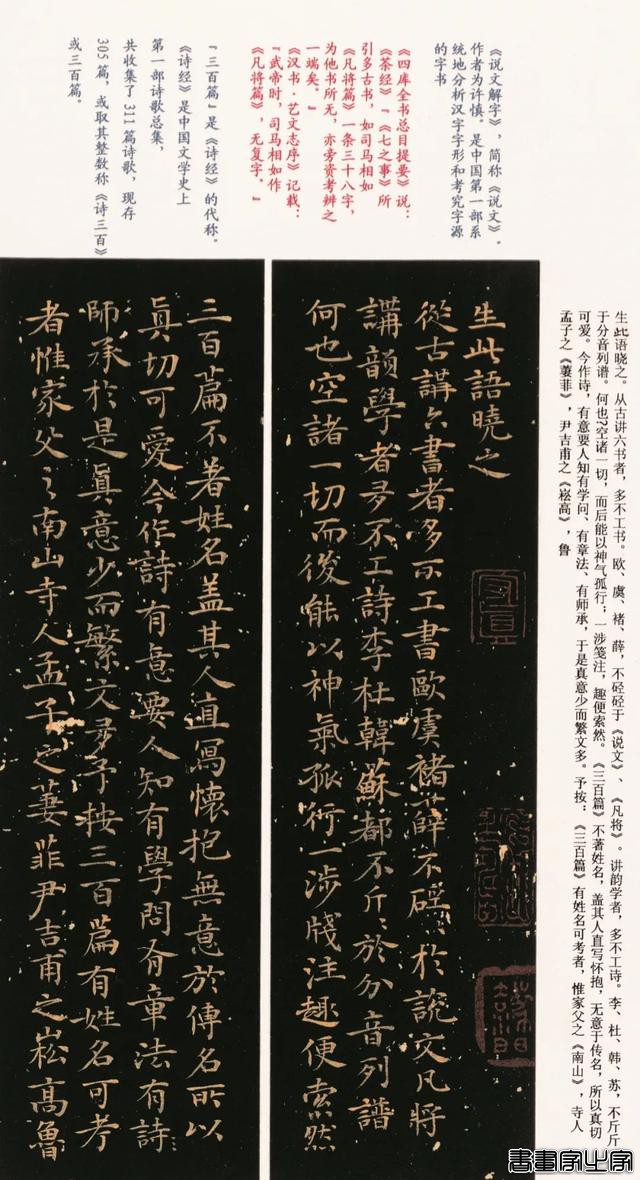 《说文解字》，简称《说文》。
作者为许慎。是中国第一部系
统地分析汉字字形和考究字源
的字书
《四库全书总目提要》说：
《茶经》「《七之事》所
引多古书，如司马相如
《凡将篇》一条三十八字，
为他书所无，亦旁资考辨之
一端矣。」
《汉书·艺文志序》记载：
『武帝时，司马相如作
《凡将篇》，无复字。』
『三百篇』是《诗经》的代称。
《诗经》是中国文学史上
第一部诗歌总集，
共收集了311篇诗歌，现存
305篇，或取其整数称《诗三百》
或三百篇。
生此语晓之。从古讲六书者，多不工书。欧、虞、褚、薛，不硁硁于《说文》、《凡将》。讲韵学者，多不工诗。李、杜、韩、苏，不斤斤
于分音列谱。何也?空诸一切，而后能以神气孤行；一涉笺注，趣便索然。《三百篇》不著姓名，盖其人直写怀抱，无意于传名，所以真切
可爱。今作诗，有意要人知有学问、有章法、有师承，于是真意少而繁文多。予按：《三百篇》有姓名可考者，惟家父之《南山》，寺人
孟子之《萋菲》，尹吉甫之《崧高》，鲁
生此語曉之
從古講六書者多不工書歐虞褚薛不硜硜於說文凡將
講韻學者多不工詩李杜韓蘇都不斤斤於分音列譜
何也空諸一切而後能以神氣孤行一涉牋注趣便索然
三百篇不著姓名盖其人直寫懷抱無意於傳名所以
真切可愛今作詩有意要人知有學問有章法有詩
師承於是真意少而繁文多予按三百篇有姓名可考
者惟家父之南山寺人孟子之萋菲尹吉甫之崧高魯